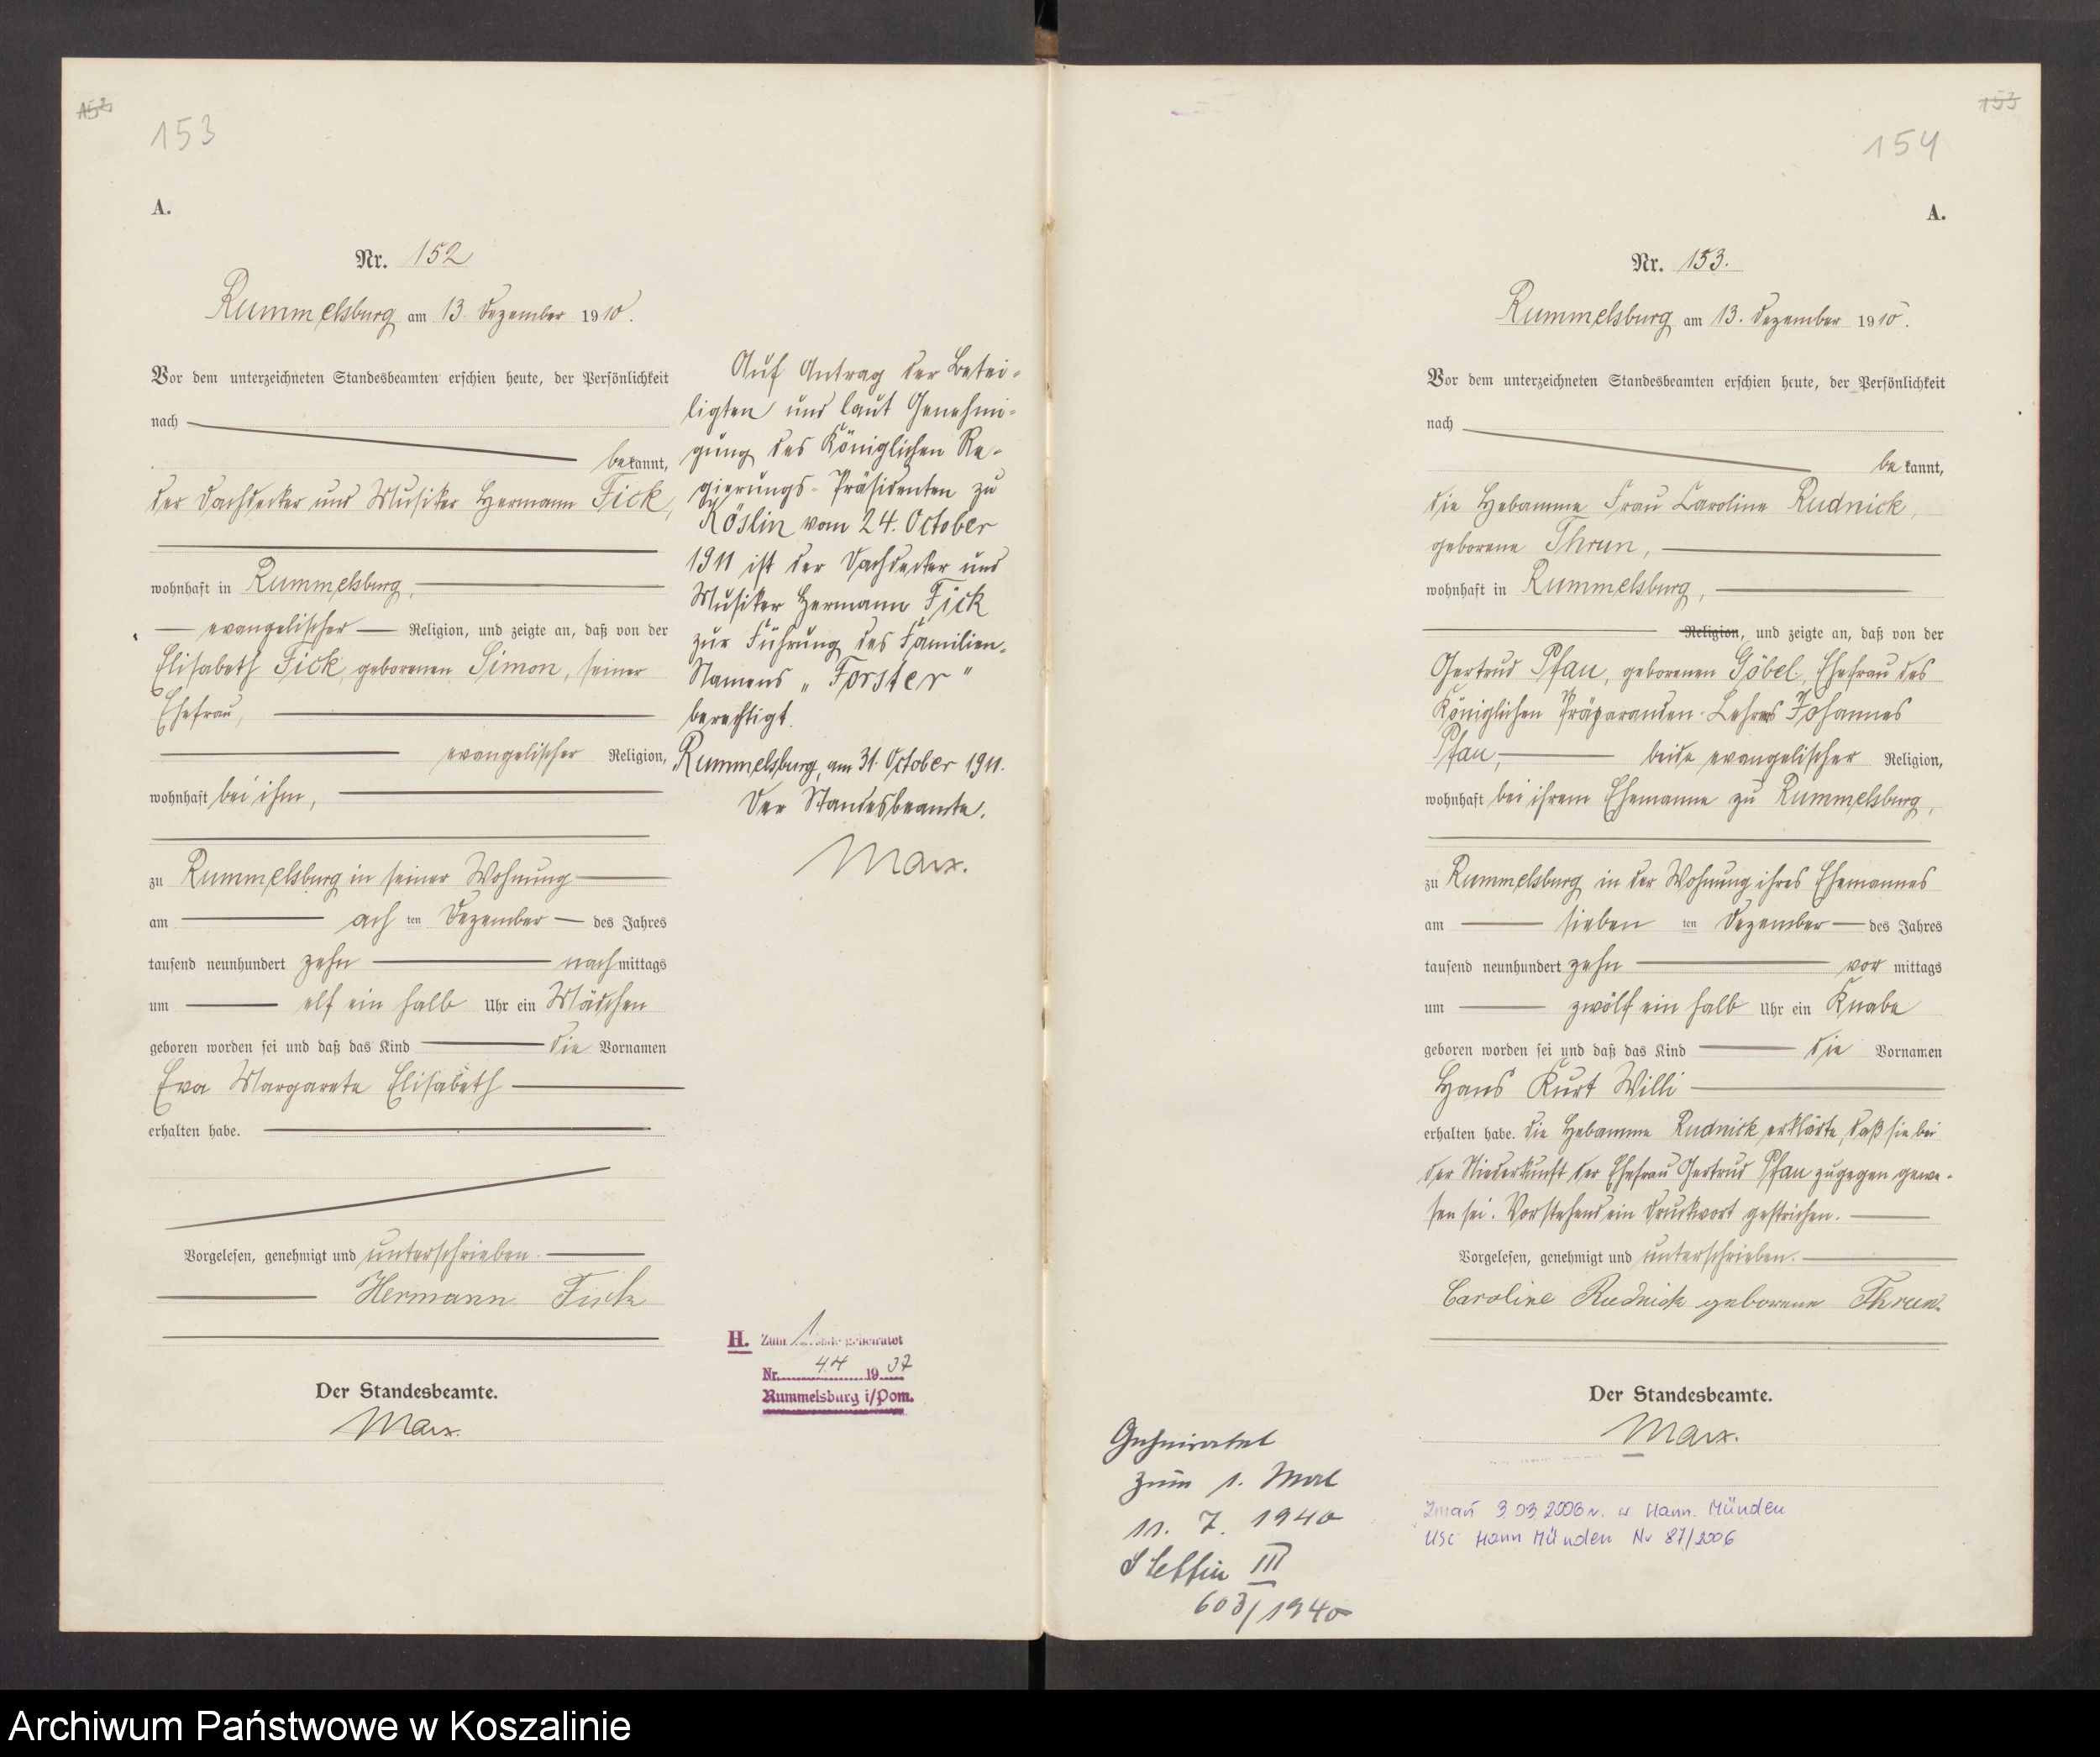 152
153
A.
Nr. 152
Rummelsburg am 13. Dezember 1910.
Vor dem unterzeichneten Standesbeamten erschien heute, der Persönlichkeit
nach
bekannt,
der Dachdecker und Musiker Hermann Fick,
wohnhaft in Rummelsburg,
evangelischer Religion, und zeigte an, daß von der
Elisabeth Fick, geborenen Simon, seiner
Ehefrau,
evangelischer Religion,
wohnhaft bei ihm,
zu Rummelsburg in seiner Wohnung
am achten Dezember des Jahres
tausend neunhundert zehn nachmittags
um elf ein halb Uhr ein Mädchen
geboren worden sei und daß das Kind die Vornamen
Eva Margarete Elisabeth
erhalten habe.
Vorgelesen, genehmigt und unterschrieben.
Hermann Fick
Der Standesbeamte.
Marx.
Auf Antrag der Betei-
ligten und laut Genehmi-
gung des Königlichen Re-
gierungs-Präsidenten zu
Köslin vom 24. October
1911 ist der Dachdecker und
Musiker Hermann Fick
zur Führung des Familien-
Namens „Forster"
berechtigt.
Rummelsburg, am 31. October 1911.
Der Standesbeamte.
Marx.
H. Zum 1. geheiratet
Nr. 44 1937
Rummelsburg i/Pom.
153
154
A.
Nr. 153.
Rummelsburg am 13. Dezember 1910.
Vor dem unterzeichneten Standesbeamten erschien heute, der Persönlichkeit
nach
bekannt,
die Hebamme Frau Caroline Rudnick,
geborene Thrun,
wohnhaft in Rummelsburg,
Religion, und zeigte an, daß von der
Gertrud Pfau, geborenen Göbel, Ehefrau des
Königlichen Präparanden-Lehrers Johannes
Pfau, beide evangelischer Religion,
wohnhaft bei ihrem Ehemanne zu Rummelsburg,
zu Rummelsburg in der Wohnung ihres Ehemannes
am siebenten Dezember des Jahres
tausend neunhundert zehn vormittags
um zwölf ein halb Uhr ein Knabe
geboren worden sei und daß das Kind die Vornamen
Hans Kurt Willi
erhalten habe. Die Hebamme Rudnick erklärte, daß sie bei
der Niederkunft der Ehefrau Gertrud Pfau zugegen gewe-
sen sei. Vorstehend ein Druckwort gestrichen.
Vorgelesen, genehmigt und unterschrieben.
Caroline Rudnick geborene Thrun.
Der Standesbeamte.
Marx.
Geheiratet
zum 1. Mal
11. 7. 1940
Stettin III
603/1940
Zmarł 3.03.2006 r. w Hann. Münden
USC Hann Münden Nr 87/2006
Archiwum Państwowe w Koszalinie